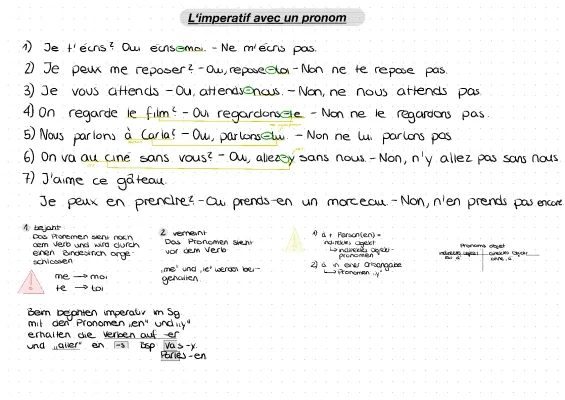 L'imperatif avec un pronom
1) Je t'écris? Oui écris-moi. - Ne m'écris pas.
2) Je peux me reposer? - Oui, repose-toi - Non ne te repose pas.
3) Je vous attends - Oui, attends-nous. - Non, ne nous attends pas.
4) On regarde le film? - Oui regardons-le - Non ne le regardons pas
5) Nous parlons à Carla? - Oui, parlons-lui. - Non ne lui parlons pas
6) On va au ciné sans vous? - Oui, allez-y sans nous. - Non, n'y allez pas sans nous.
7) J'aime ce gâteau.
Je peux en prendre? - Oui prends-en un morceau. - Non, n'en prends pas encore
1. bejaht
Das Pronomen steht nach
dem Verb und wird durch
einen Bindestrich ange-
schlossen
me → moi
te → toi
2. verneint
Das Pronomen steht
vor dem Verb
"me" und "te" werden bei-
gehalten.
1) à + Person(en) =
indirektes Objekt
↳ indirektes Objekt-
pronomen
2) à in einer Ortsangabe
↳ Pronomen "y"
Pronoms objet
indirektes Objekt direktes Objekt
Beim bejahten imperativ im Sg.
mit den Pronomen "en" und "y"
erhalten die Verben auf -er
und "aller" en -s Bsp Vas-y.
Parles-en